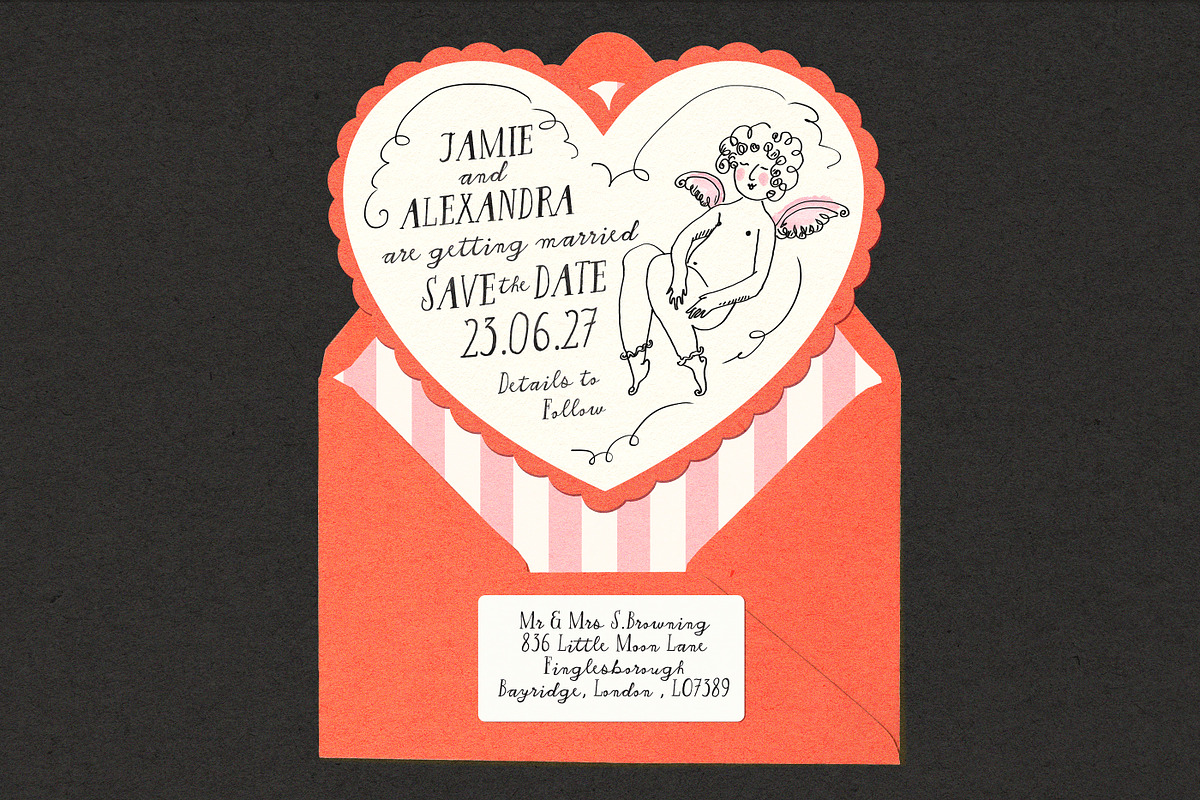 JAMIE
and
ALEXANDRA
are getting married
SAVE the DATE
23.06.27
Details to
Follow
Mr & Mrs S.Browning
836 Little Moon Lane
Finglesborough
Bayridge, London , LO7389